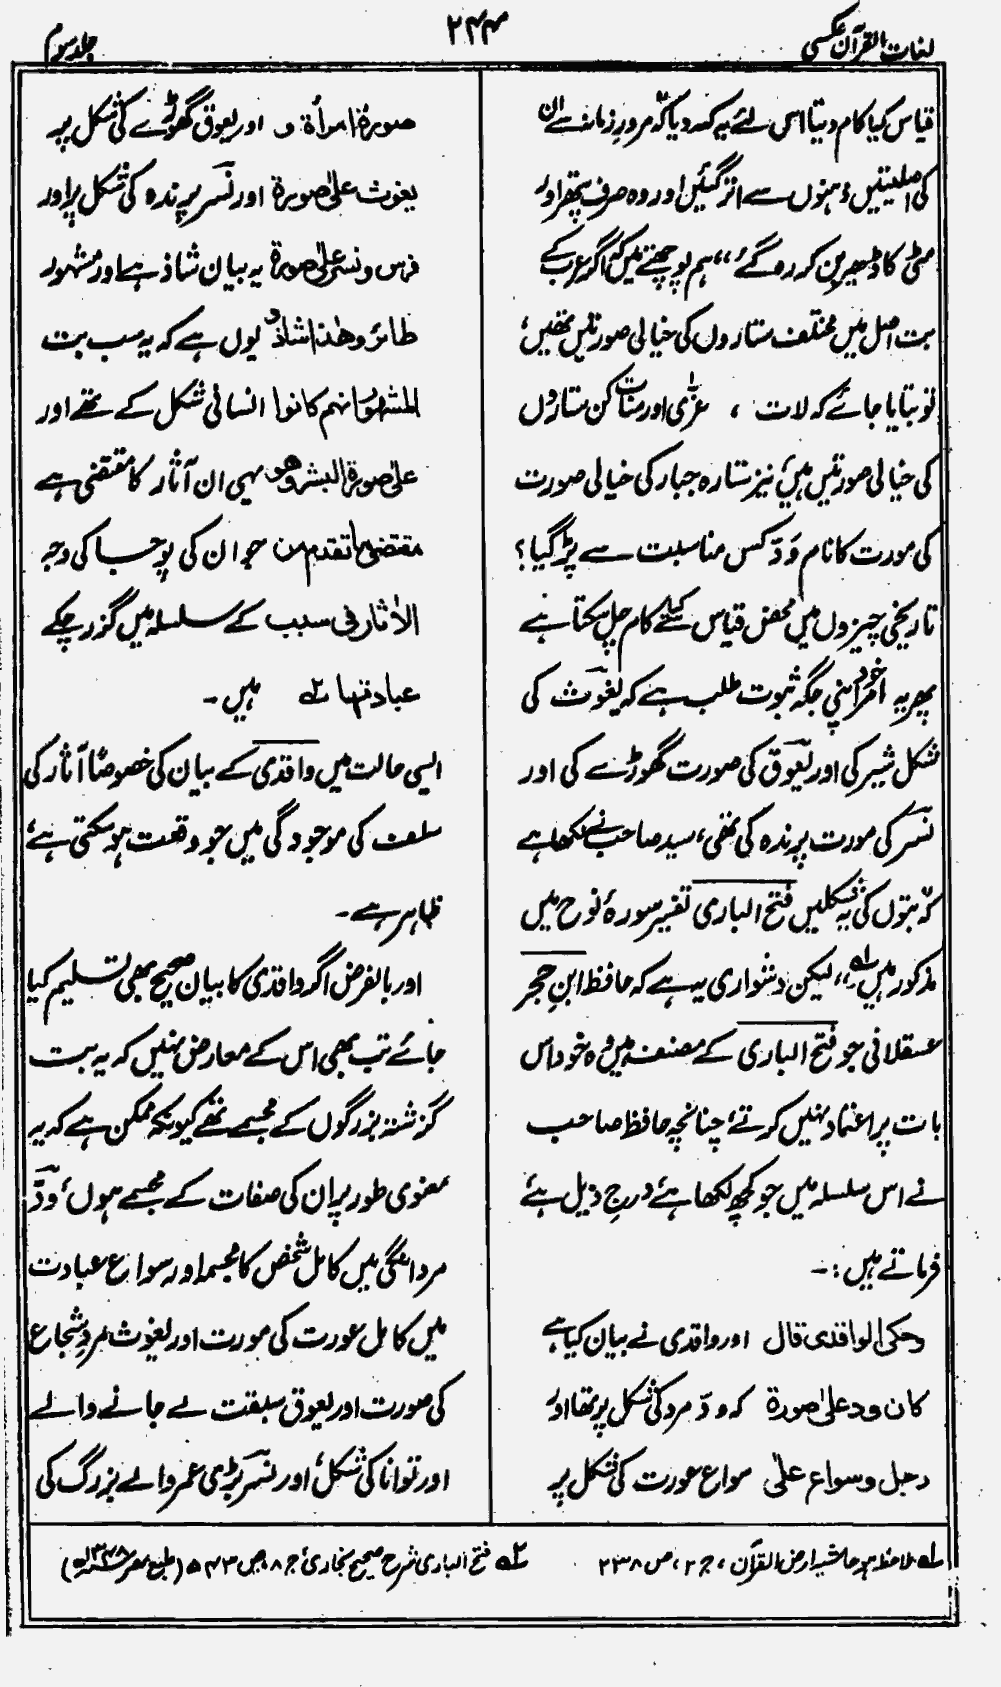 لغات القرآن عکسی
۲۴۴
جلد سوم
قیاس کیا کام دیتا اسی لئے یہ کہہ دیا کہ مرورِ زمانہ سے ان
کی اصلیتیں ذہنوں سے اتر گئیں اور وہ صرف پتھر اور
مٹی کا ڈھیر بن کر رہ گئے“ ہم پوچھتے ہیں کہ اگر عرب کے
بت اصل میں مختلف ستاروں کی خیالی صورتیں تھیں،
تو بتایا جائے کہ لات ، عزّٰی اور منات کن ستاروں
کی خیالی صورتیں ہیں، نیز ستارہ جبار کی خیالی صورت
کی مورت کا نام وَدّ کس مناسبت سے پڑ گیا؟
تاریخی چیزوں میں محض قیاس سے کیسے کام چل سکتا ہے
پھر یہ امر خود اپنی جگہ ثبوت طلب ہے کہ یغوث کی
شکل شیر کی اور یعوق کی صورت گھوڑے کی اور
نسر کی مورت پرندہ کی تھی، سید صاحب نے لکھا ہے
کہ بتوں کی یہ شکلیں فتح الباری تفسیر سورۂ نوح میں
مذکور ہیں لہ ، لیکن دشواری یہ ہے کہ حافظ ابنِ حجر
عسقلانی جو فتح الباری کے مصنف ہیں وہ خود اس
بات پر اعتماد نہیں کرتے، چنانچہ حافظ صاحب
نے اس سلسلہ میں جو کچھ لکھا ہے، درجِ ذیل ہے
فرماتے ہیں :۔
وحکی الواقدی قال اور واقدی نے بیان کیا ہے
کان ود علیٰ صورۃ کہ ودّ مرد کی شکل پر تھا اور
رجل وسواع علیٰ سواع عورت کی شکل پر
صورۃ امرأۃ و اور یعوق گھوڑے کی شکل پر
یغوث علیٰ صورۃ اور نسر پرندہ کی شکل پر اور
فرس ونسر علیٰ صورۃ یہ بیان شاذ ہے اور مشہور
طائر وھٰذا شاذ و یوں ہے کہ یہ سب بت
المشہور انہم کانوا انسانی شکل کے تھے اور
علیٰ صورۃ البشر وھو یہی ان آثار کا مقتضی ہے
مقتضیٰ ما تقدم من جو ان کی پوجا کی وجہ
الآثار فی سبب کے سلسلہ میں گزر چکے
عبادتہا ۲ہ ہیں۔
ایسی حالت میں واقدی کے بیان کی خصوصاً آثار کی
سلف کی موجودگی میں جو وقعت ہو سکتی ہے،
ظاہر ہے۔
اور بالفرض اگر واقدی کا بیان صحیح بھی تسلیم کیا
جائے تب بھی اس کے معارض نہیں کہ یہ بت
گزشتہ بزرگوں کے مجسمے تھے کیونکہ ممکن ہے کہ یہ
معنوی طور پر ان کی صفات کے مجسمے ہوں، ودّ
مردانگی میں کامل شخص کا مجسمہ اور سواع عبادت
میں کامل عورت کی مورت اور یغوث مردِ شجاع
کی صورت اور یعوق سبقت لے جانے والے
اور توانا کی شکل، اور نسر بڑی عمر والے بزرگ کی
لہ ملاحظہ ہو حاشیہ ارض القرآن، ج ۲، ص ۲۳۸
۲ہ فتح الباری شرح صحیح بخاری، ج ۸، ص ۵۴۳ (طبع مصر ۱۳۴۸ھ)